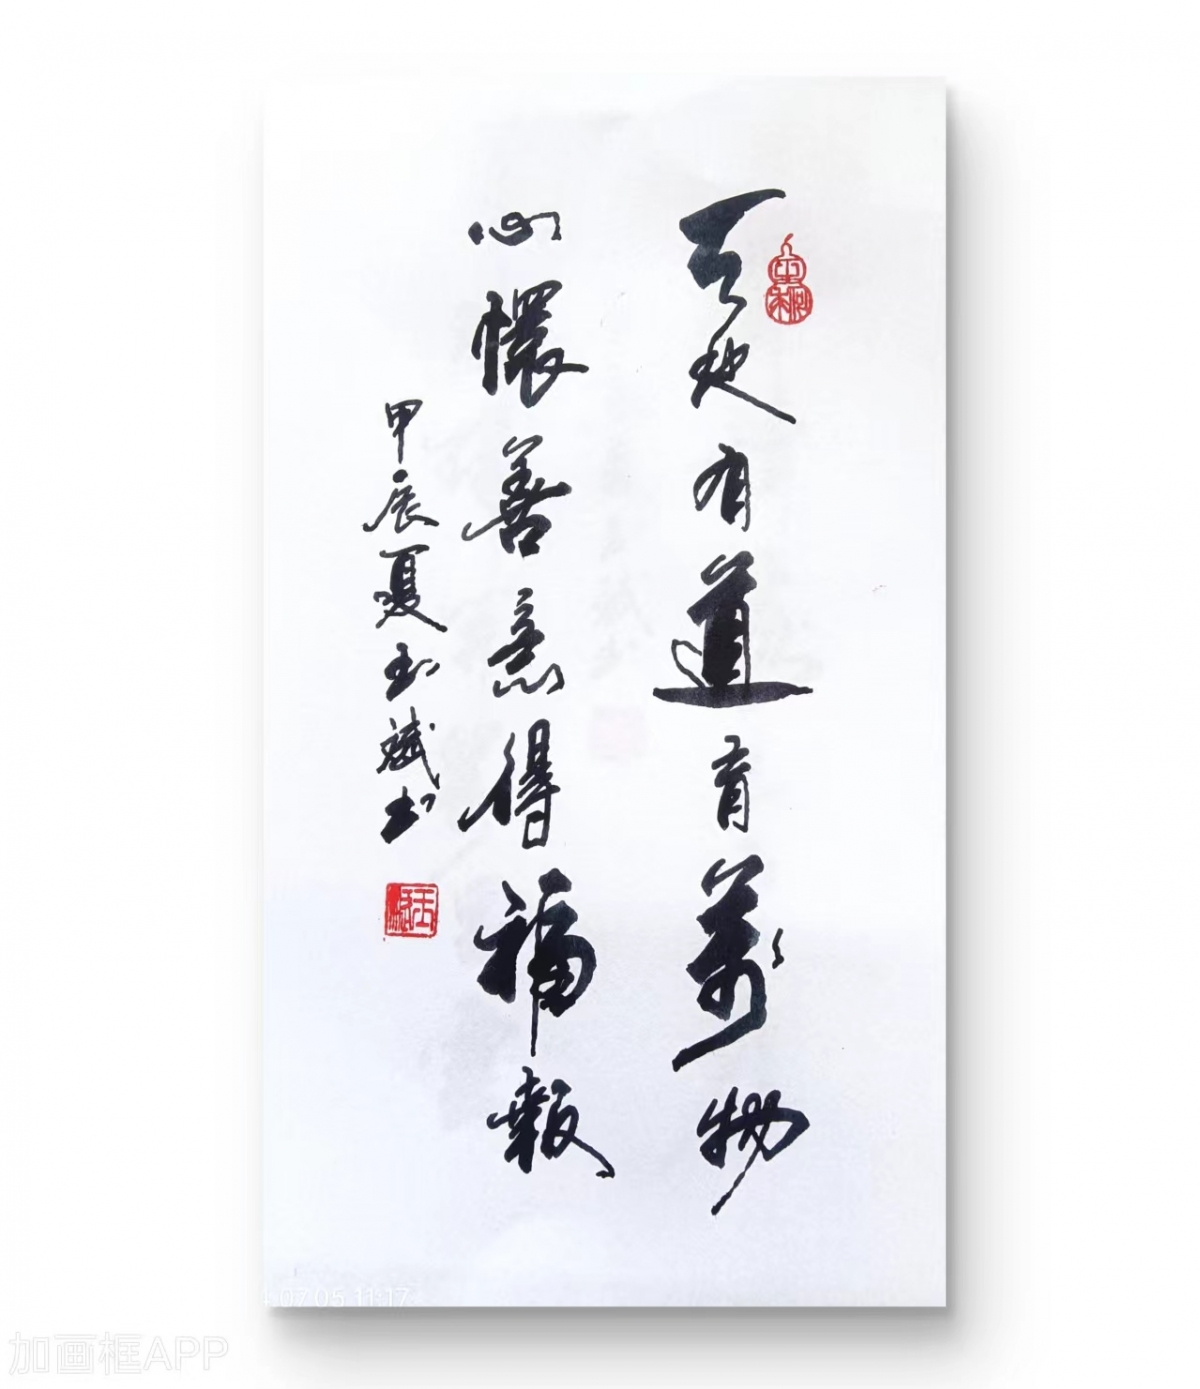 天地有道育萬物
心懷善意得福報
甲辰夏玉斌书
07.05 11:17
加画框APP